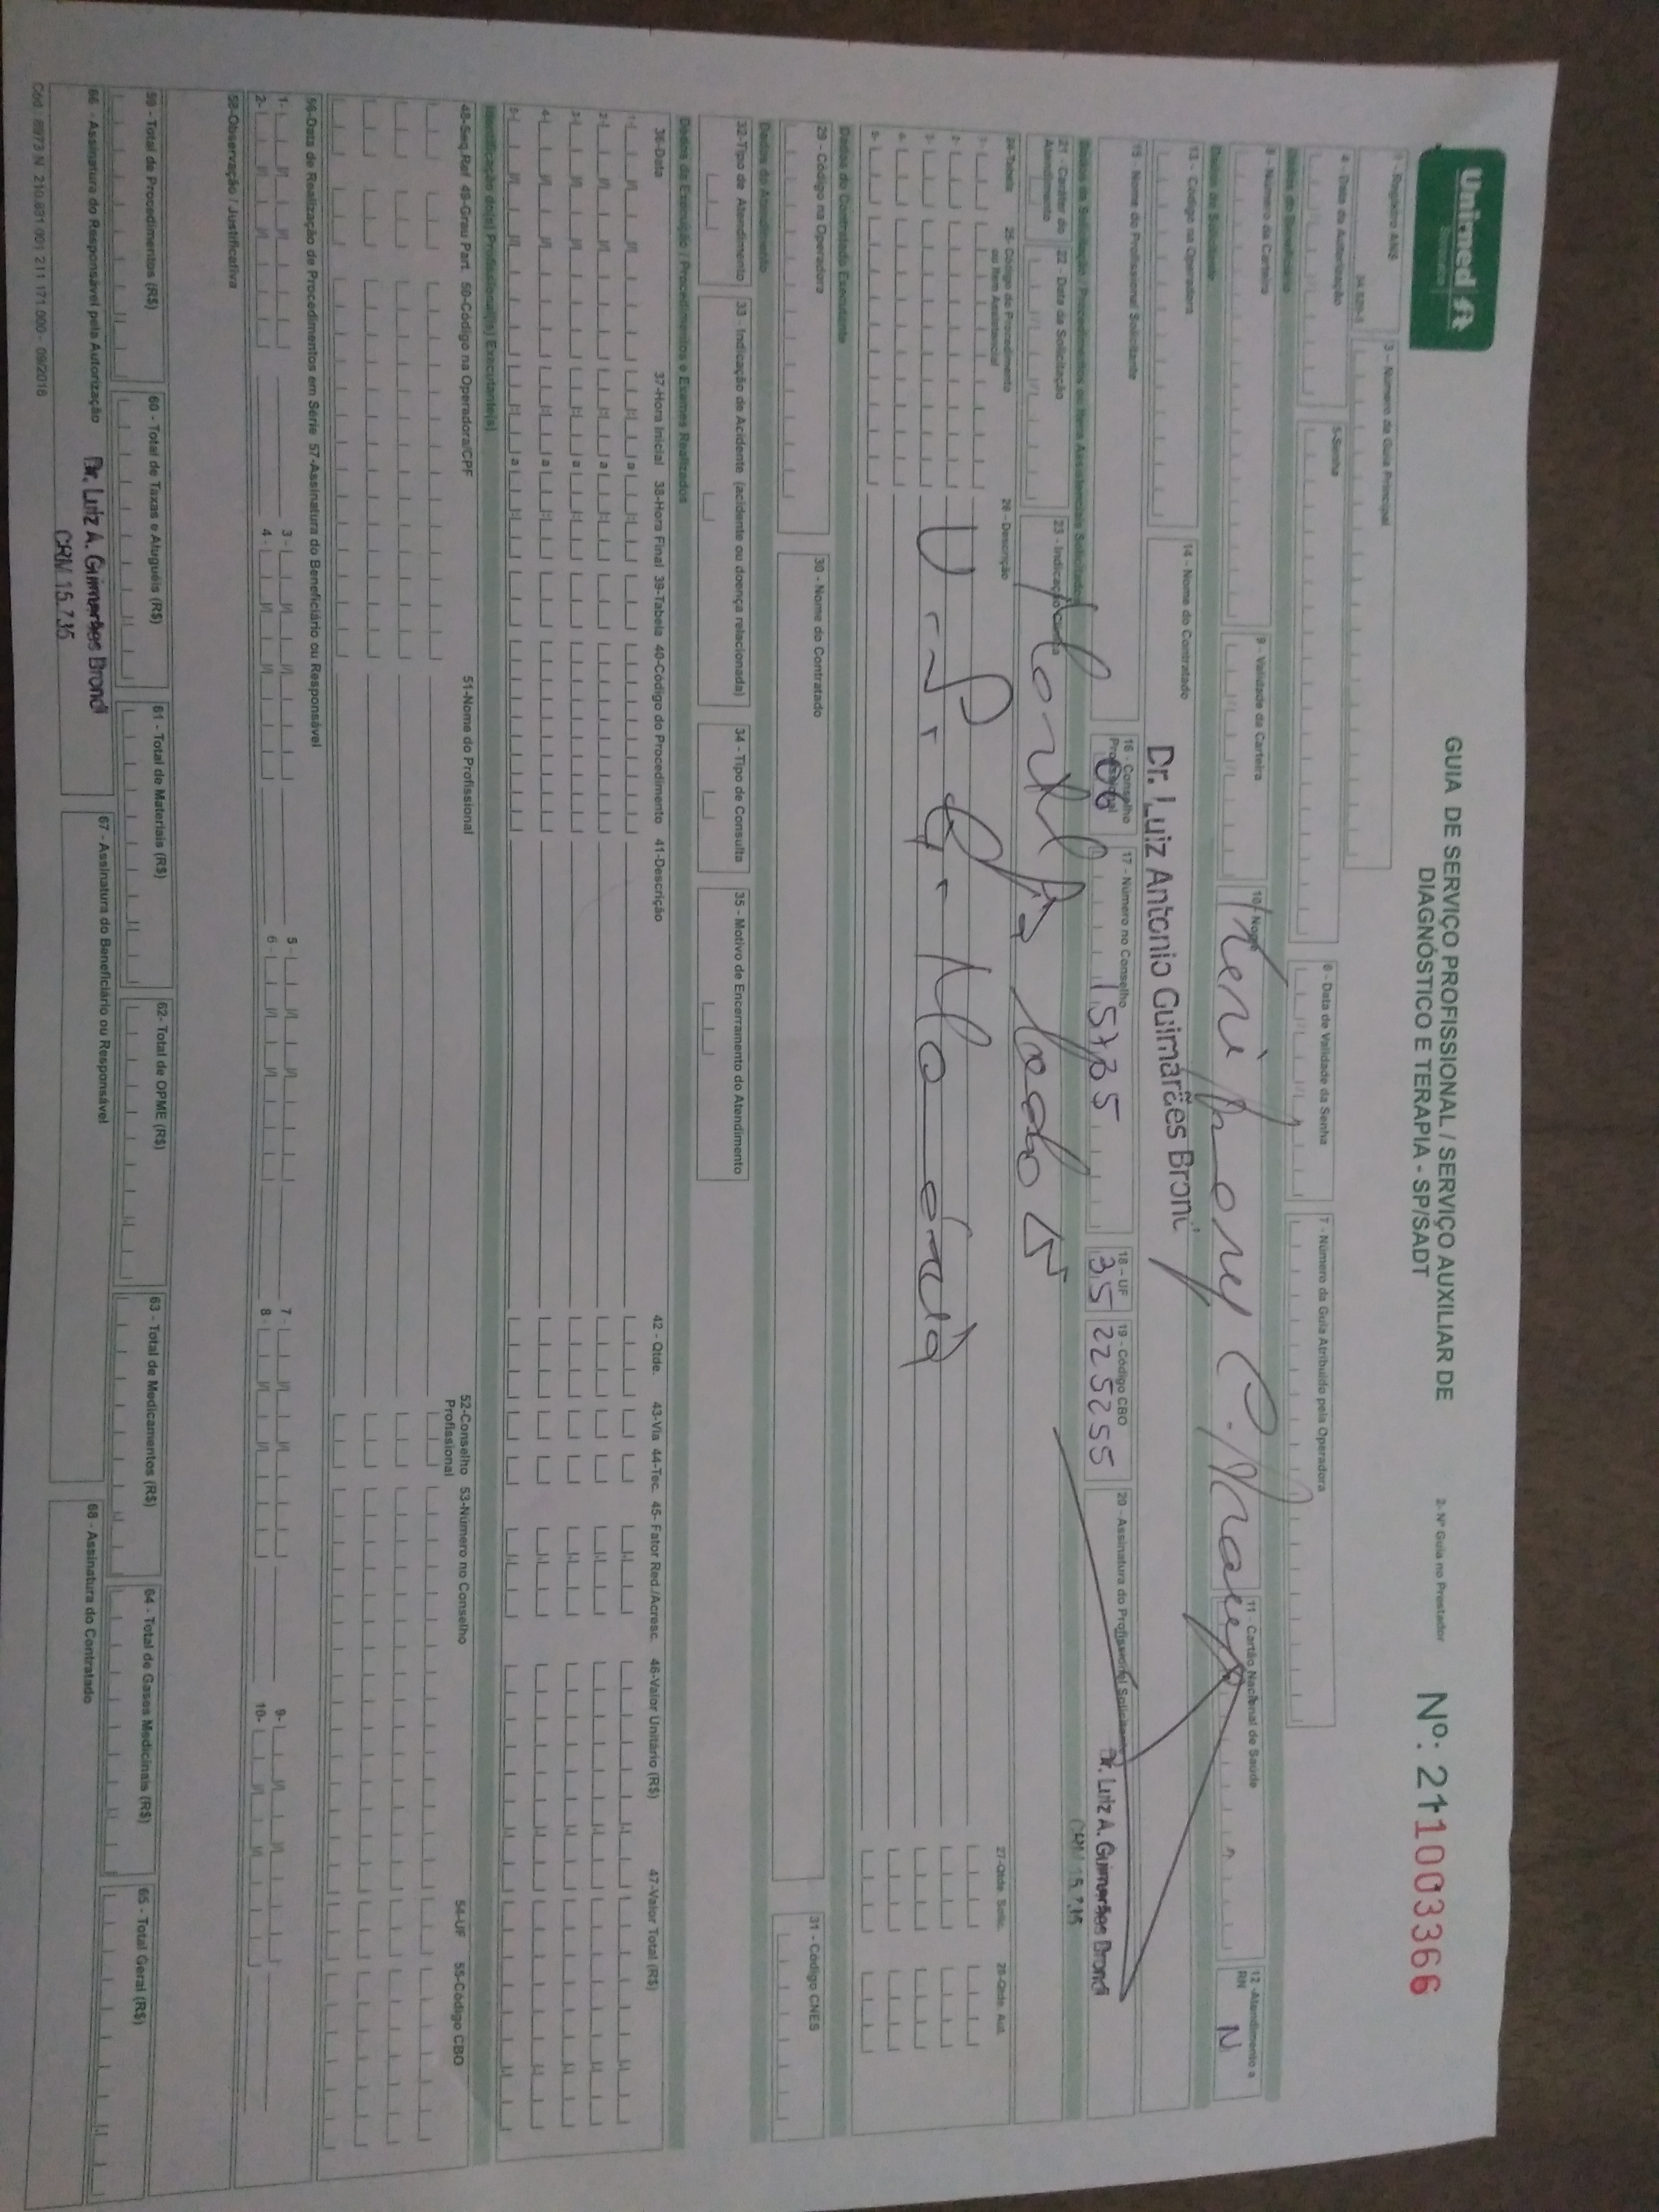 Unimed
Sorocaba
GUIA DE SERVIÇO PROFISSIONAL / SERVIÇO AUXILIAR DE
DIAGNÓSTICO E TERAPIA - SP/SADT
2- Nº Guia no Prestador
Nº: 211003366
1 - Registro ANS
3 - Número da Guia Principal
4 - Data da Autorização
5-Senha
6 - Data de Validade da Senha
7 - Número da Guia Atribuído pela Operadora
Dados do Beneficiário
8 - Número da Carteira
9 - Validade da Carteira
10 - Nome
11 - Cartão Nacional de Saúde
12 - Atendimento a RN
N
Dados do Solicitante
13 - Código na Operadora
14 - Nome do Contratado
Dr. Luiz Antonio Guimarães Brondi
15 - Nome do Profissional Solicitante
16 - Conselho Profissional
06
17 - Número no Conselho
15735
18 - UF
35
19 - Código CBO
225255
20 - Assinatura do Profissional Solicitante
Dr. Luiz A. Guimarães Brondi
CRM 15.735
Dados da Solicitação / Procedimentos ou Itens Assistenciais Solicitados
21 - Caráter do Atendimento
22 - Data da Solicitação
23 - Indicação Clínica
24-Tabela
25- Código do Procedimento ou Item Assistencial
26 - Descrição
27-Qtde. Solic.
28-Qtde. Aut.
1-
2-
3-
4-
5-
Dados do Contratado Executante
29 - Código na Operadora
30 - Nome do Contratado
31 - Código CNES
Dados do Atendimento
32-Tipo de Atendimento
33 - Indicação de Acidente (acidente ou doença relacionada)
34 - Tipo de Consulta
35 - Motivo de Encerramento do Atendimento
Dados da Execução / Procedimentos e Exames Realizados
36-Data
37-Hora Inicial
38-Hora Final
39-Tabela
40-Código do Procedimento
41-Descrição
42 - Qtde.
43-Via
44-Tec.
45- Fator Red./Acresc.
46-Valor Unitário (R$)
47-Valor Total (R$)
1-
a
2-
a
3-
a
4-
a
5-
a
Identificação do(s) Profissional(is) Executante(s)
48-Seq.Ref
49-Grau Part.
50-Código na Operadora/CPF
51-Nome do Profissional
52-Conselho Profissional
53-Número no Conselho
54-UF
55-Código CBO
56-Data de Realização de Procedimentos em Série
57-Assinatura do Beneficiário ou Responsável
1-
3-
5-
7-
9-
2-
4-
6-
8-
10-
58-Observação / Justificativa
59 - Total de Procedimentos (R$)
60 - Total de Taxas e Aluguéis (R$)
61 - Total de Materiais (R$)
62- Total de OPME (R$)
63 - Total de Medicamentos (R$)
64 - Total de Gases Medicinais (R$)
65 - Total Geral (R$)
66 - Assinatura do Responsável pela Autorização
Dr. Luiz A. Guimarães Brondi
CRM 15.735
67 - Assinatura do Beneficiário ou Responsável
68 - Assinatura do Contratado
Cód. 8973 N 210.831.001 211.171.000 - 08/2018